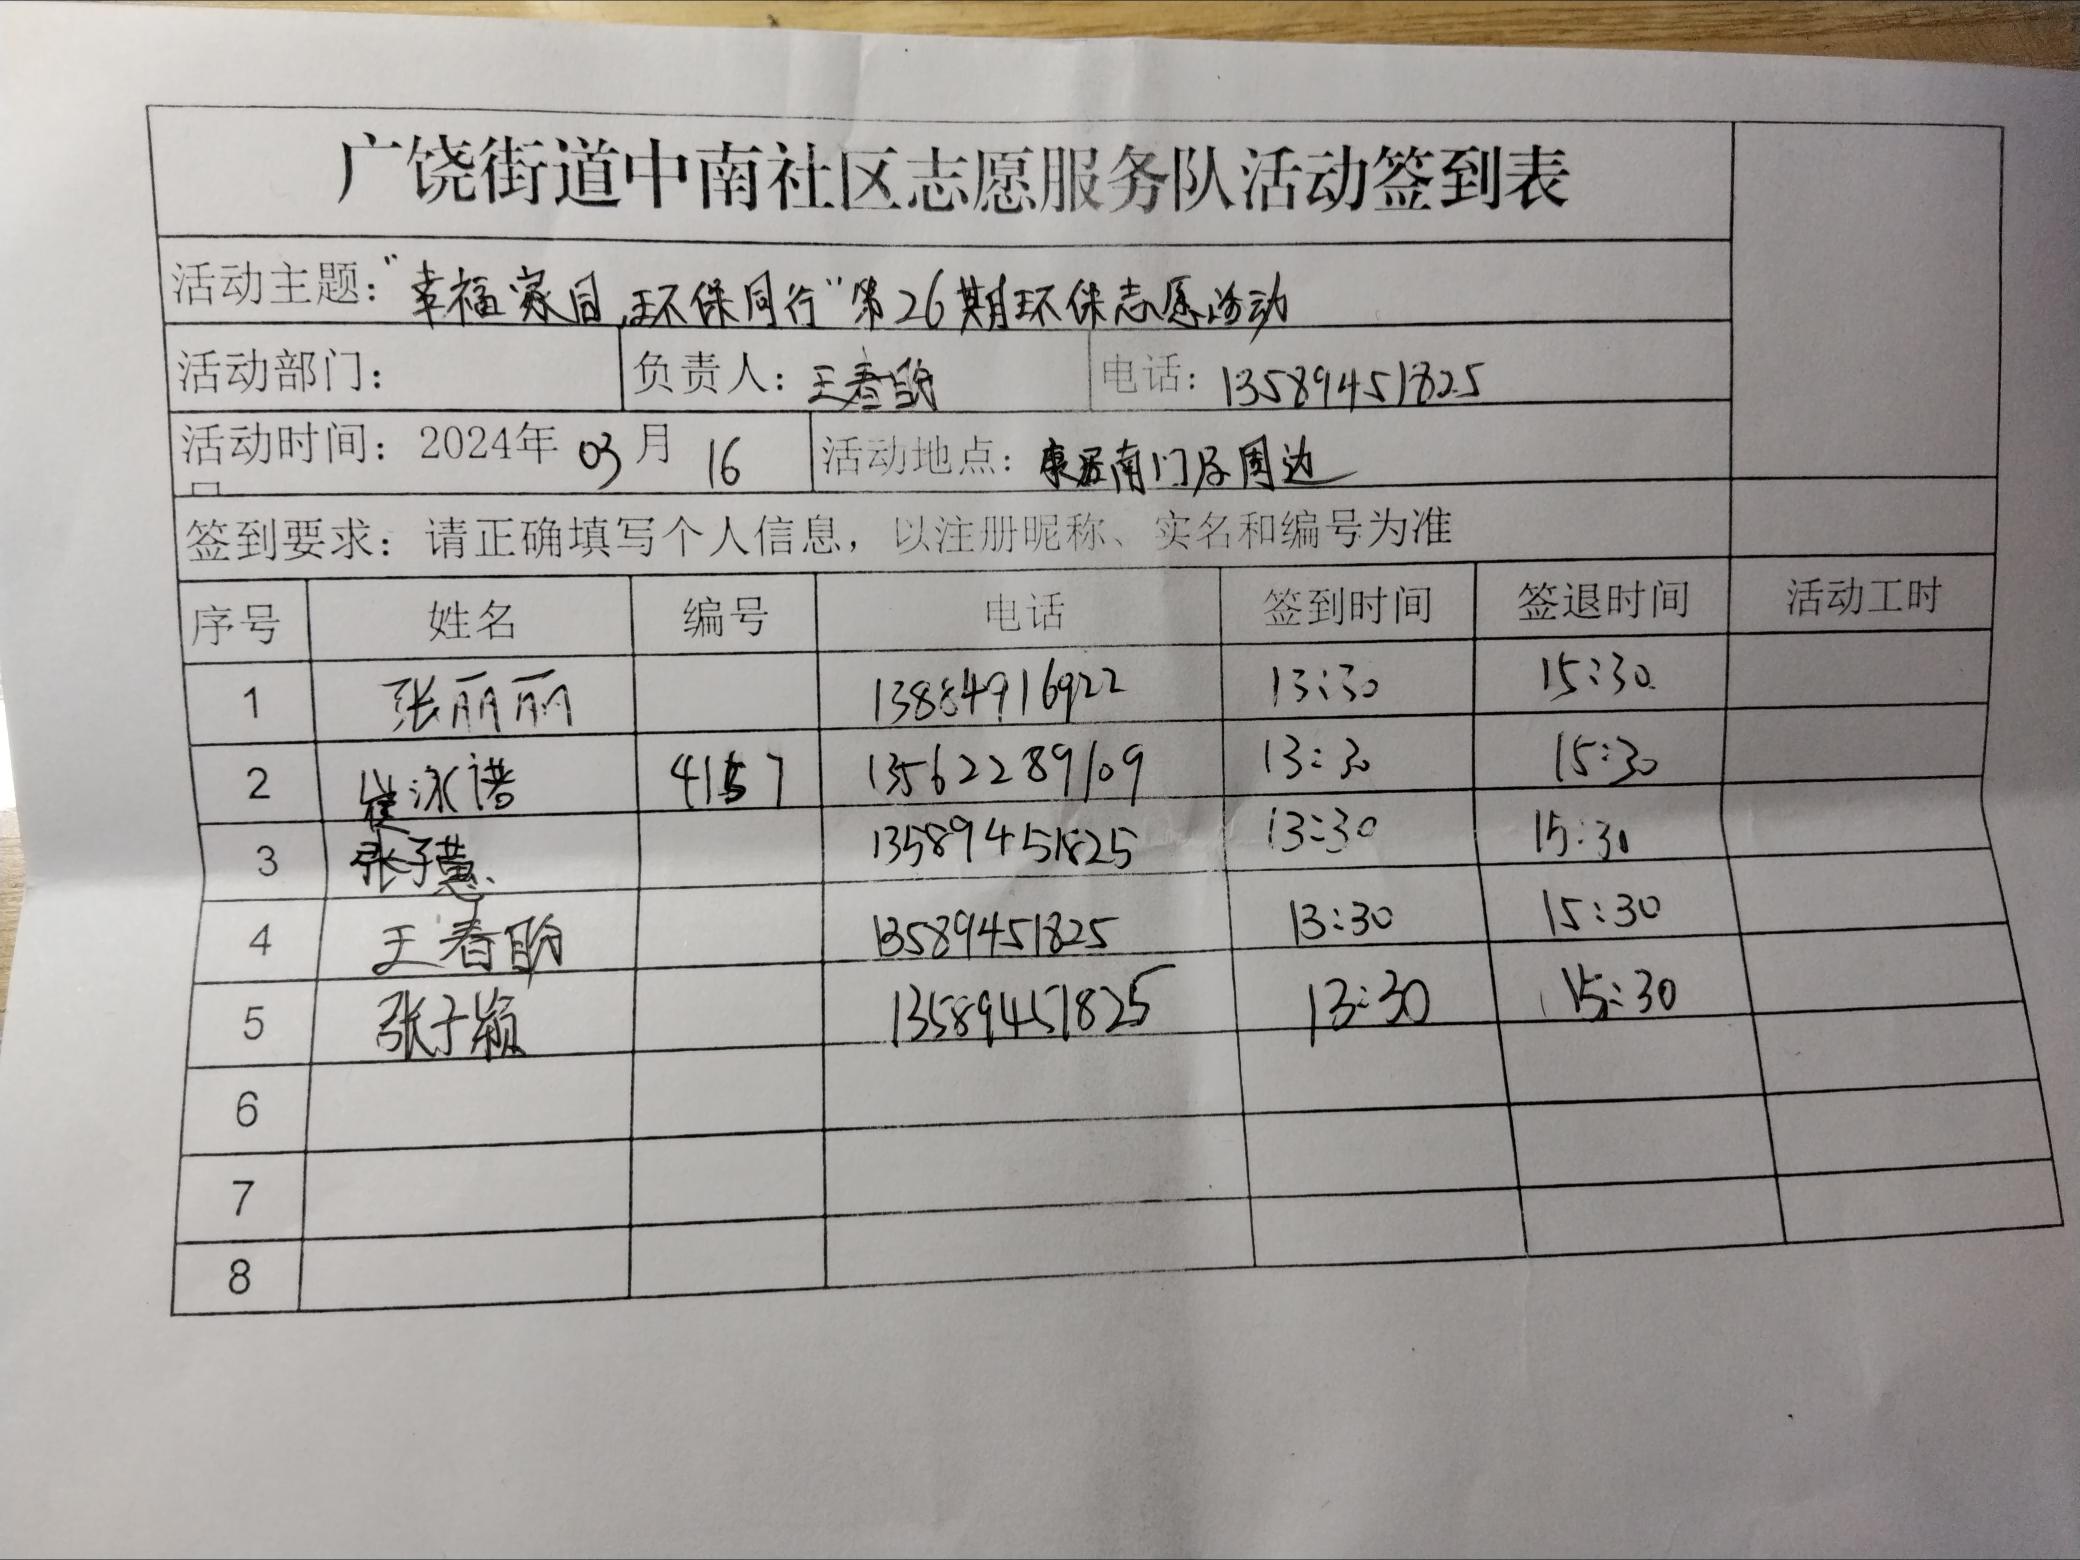 广饶街道中南社区志愿服务队活动签到表
活动主题：“幸福家园，环保同行”第26期环保志愿活动
活动部门： 负责人：王春盼 电话：13589451825
活动时间：2024年03月16 活动地点：康居南门及周边
日
签到要求：请正确填写个人信息，以注册昵称、实名和编号为准
序号 姓名 编号 电话 签到时间 签退时间 活动工时
1 张丽丽 13884916922 13:30 15:30
2 崔泳谱 4157 13562289109 13:30 15:30
3 张子慧 13589451825 13:30 15:30
4 王春盼 13589451825 13:30 15:30
5 张子颖 13589451825 13:30 15:30
6
7
8